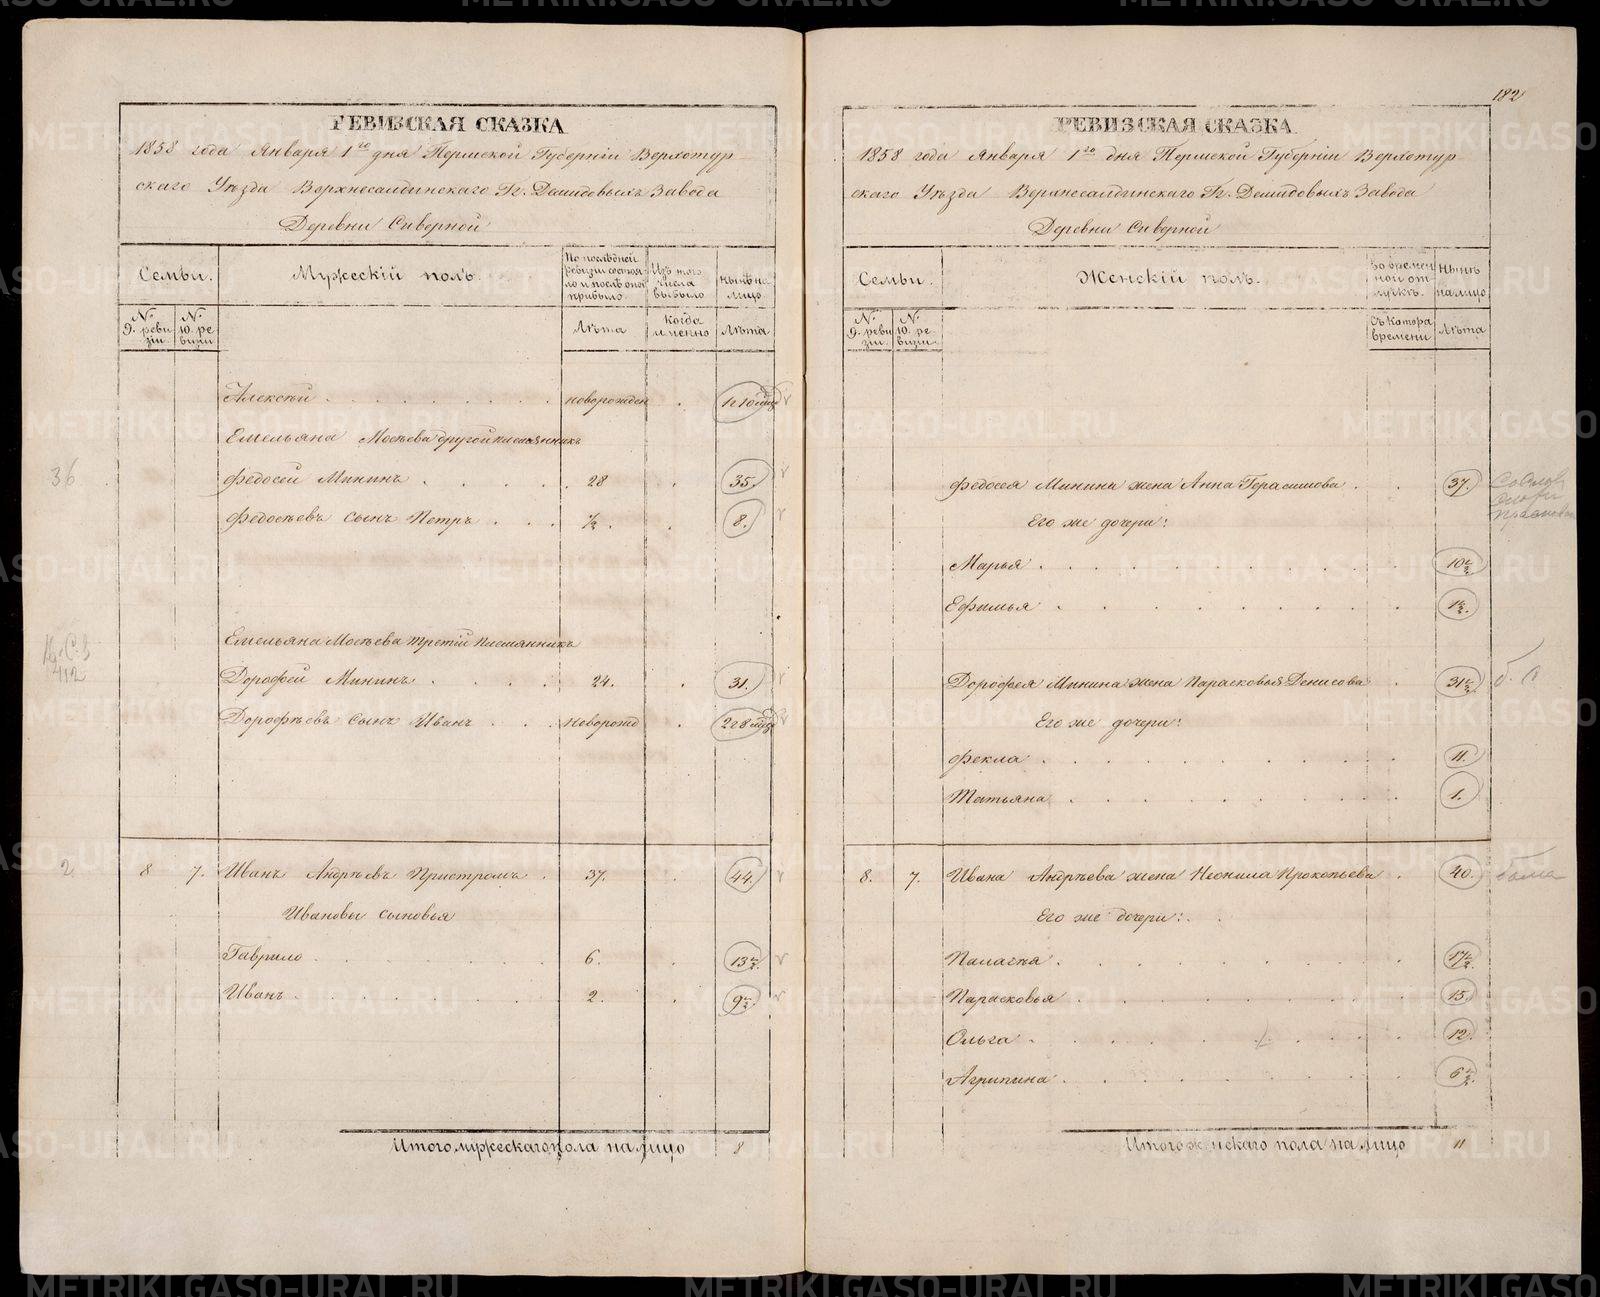 РЕВИЗСКАЯ СКАЗКА
1858 года Января 1го дня Пермской Губерніи Верхотур
скаго Уѣзда Верхнесалдинскаго Гг. Демидовыхъ Завода
Деревни Сиверной
Семьи. Мужескій полъ. По послѣдней ревизіи состояло и послѣ оной прибыло Изъ того числа выбыло Нынѣ на лицо
№ 9. ревизіи. № 10. ревизіи Лѣта Когда именно Лѣта
Алексѣй новорожден
Емельяна Мосѣева другой племянникъ
36 Федосей Мининъ 28 35.
Федосѣевъ сынъ Петръ ½. 8.
Емельяна Мосѣева третій племянникъ
412 Дорофей Мининъ 24. 31.
Дорофѣевъ сынъ Иванъ новорожд
2 8 7. Иванъ Андрѣевъ Пристромъ 37. 44.
Ивановы сыновья
Гаврило 6. 13½.
Иванъ 2. 9½.
Итого мужескаго пола на лицо 8
182
РЕВИЗСКАЯ СКАЗКА
1858 года Января 1го дня Пермской Губерніи Верхотур
скаго Уѣзда Верхнесалдинскаго Гг. Демидовыхъ Завода
Деревни Сиверной
Семьи. Женскій полъ. Во временной отлучкѣ. Нынѣ на лицо
№ 9. ревизіи. № 10. ревизіи. Съ котора времени Лѣта
Федосея Минина жена Анна Герасимова 37.
Его же дочери:
Марья 10½
Ефимья 1½.
Дорофея Минина жена Парасковья Денисова 31½
Его же дочери:
Фекла 11.
Татьяна 1.
8. 7. Ивана Андрѣева жена Неонила Прокопьева 40.
Его же дочери:
Палагѣя 17½
Парасковья 15.
Ольга 12.
Агрипина 6½
Итого женскаго пола на лицо 11
METRIKI.GASO-URAL.RU